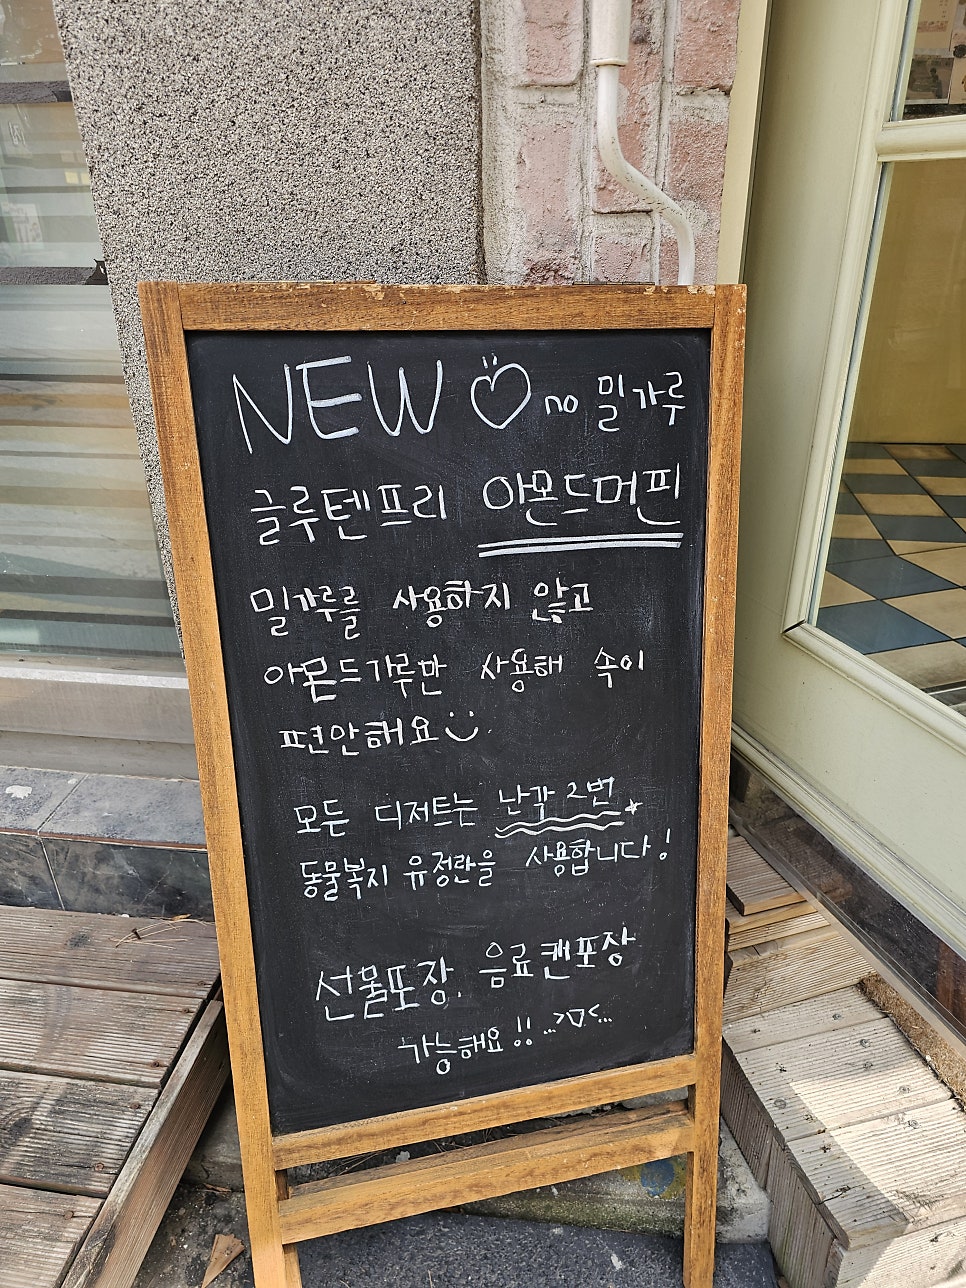 NEW ♡ no 밀가루
글루텐프리 아몬드머핀
밀가루를 사용하지 않고
아몬드가루만 사용해 속이
편안해요
모든 디저트는 난각 2번
동물복지 유정란을 사용합니다!
선물포장, 음료캔포장
가능해요!! ...>ㅁ<...